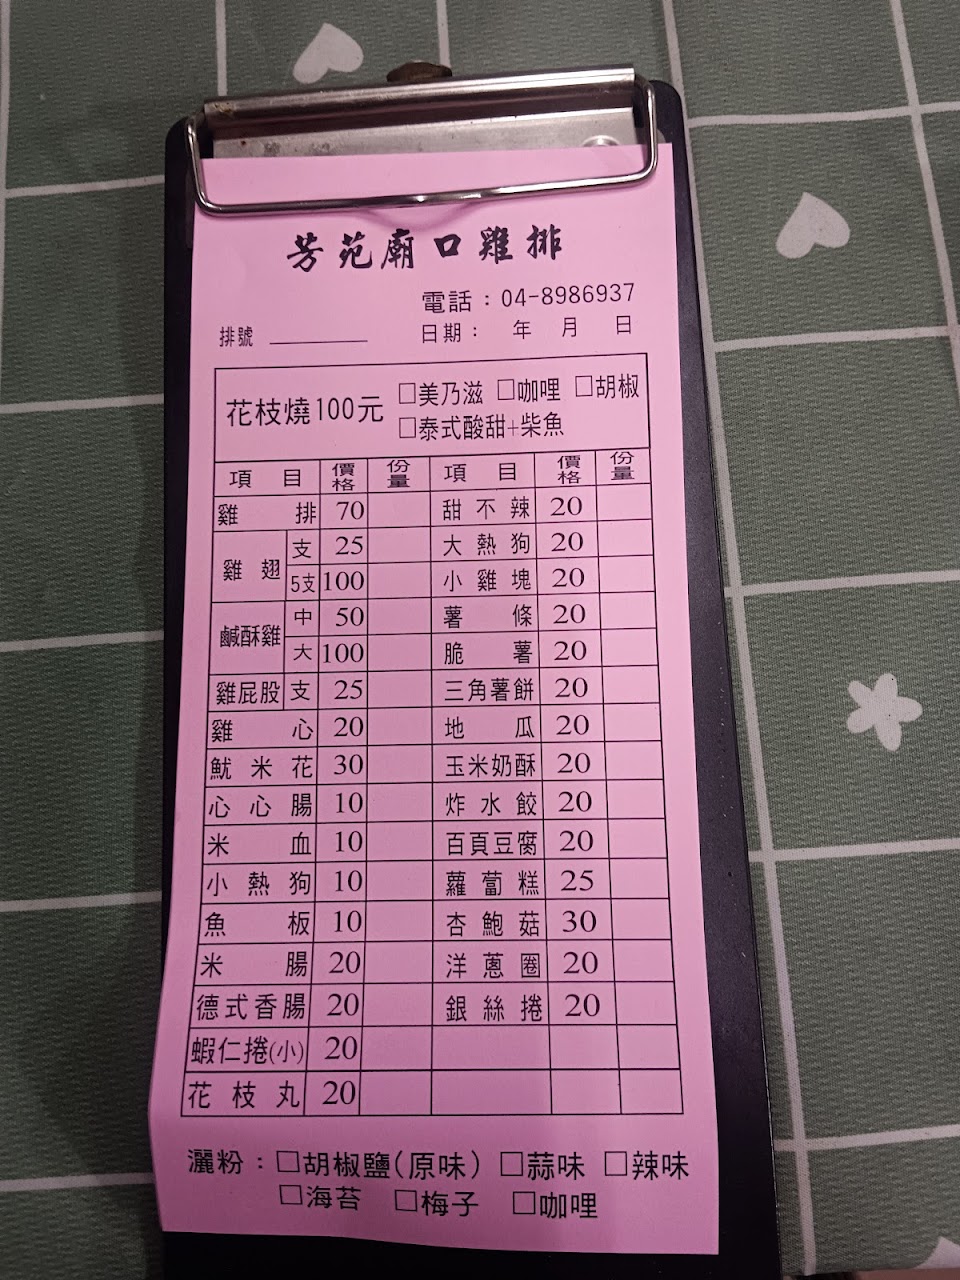 芳苑廟口雞排
電話：04-8986937
排號
日期： 年 月 日
花枝燒100元 □美乃滋 □咖哩 □胡椒
□泰式酸甜+柴魚
項目 價格 份量 項目 價格 份量
雞排 70 甜不辣 20
雞翅 支 25 大熱狗 20
5支 100 小雞塊 20
鹹酥雞 中 50 薯條 20
大 100 脆薯 20
雞屁股 支 25 三角薯餅 20
雞心 20 地瓜 20
魷米花 30 玉米奶酥 20
心心腸 10 炸水餃 20
米血 10 百頁豆腐 20
小熱狗 10 蘿蔔糕 25
魚板 10 杏鮑菇 30
米腸 20 洋蔥圈 20
德式香腸 20 銀絲捲 20
蝦仁捲(小) 20
花枝丸 20
灑粉：□胡椒鹽(原味) □蒜味 □辣味
□海苔 □梅子 □咖哩